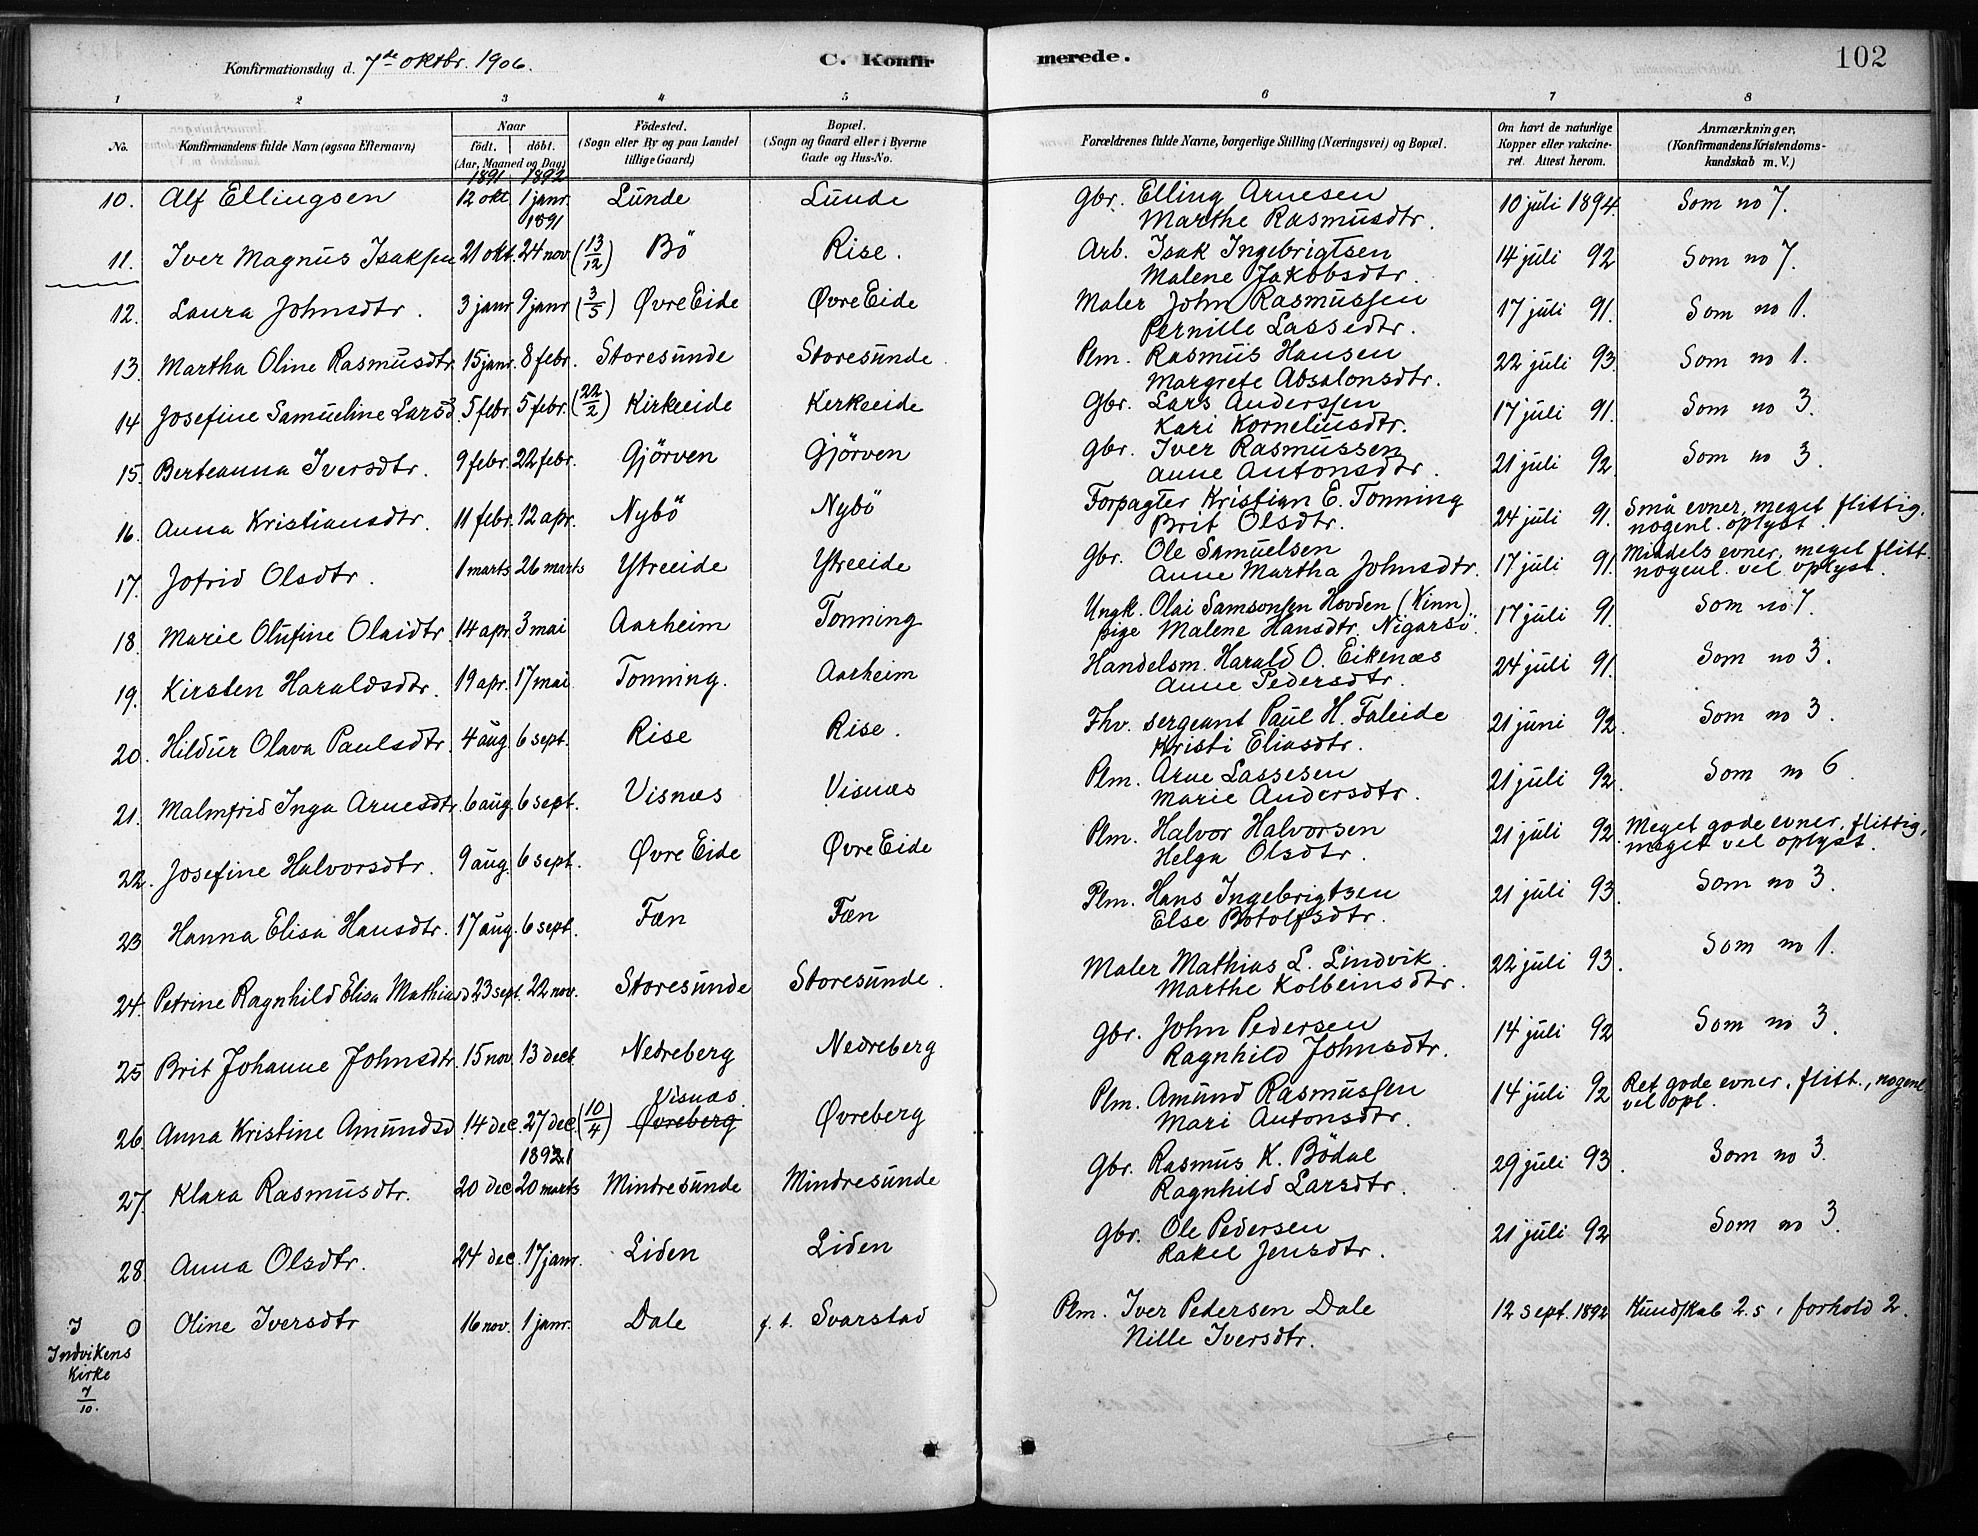 Konfirmationsdag d. 7de oktbr. 1906.
C. Konfirmerede.
102
1 2 3 4 5 6 7 8
No.
Konfirmandens fulde Navn (ogsaa Efternavn)
Naar
födt. döbt.
(Aar, Maaned og Dag)
Födested.
(Sogn eller By og paa Landet
tillige Gaard)
Bopæl.
(Sogn og Gaard eller i Byerne
Gade og Hus-No.
Forældrenes fulde Navne, borgerlige Stilling (Næringsvei) og Bopæl.
Om havt de naturlige
Kopper eller vakcine-
ret. Attest herom.
Anmærkninger,
(Konfirmandens Kristendoms-
kundskab m. V.)
1891 1892
10. Alf Ellingsen 12 okt 1 janr. Lunde Lunde Gbr. Elling Arnesen 10 juli 1894. Som no 7.
1891 Marthe Rasmusdtr.
11. Iver Magnus Isaksen 21 okt. 24 nov. (13/12) Bö Rise. Arb. Isak Ingebrigtsen 14 juli 92 Som no 7.
Malene Jakobsdtr.
12. Laura Johnsdtr. 3 janr 9 janr (3/5) Øvre Eide Øvre Eide Maler John Rasmussen 17 juli 91. Som no 1.
Pernille Lassedtr.
13. Martha Oline Rasmusdtr. 15 janr. 8 febr. Storesunde Storesunde Plm. Rasmus Hansen 22 juli 93. Som no 1.
Margrete Absalonsdtr.
14 Josefine Samueline Larsd. 5 febr. 5 febr. (22/2) Kirkeeide Kerkeeide Gbr. Lars Anderssen 17 juli 91. Som no 3.
Kari Korneliusdtr.
15. Berteanna Iversdtr. 9 febr. 22 febr. Gjörven Gjörven Gbr. Iver Rasmussen 21 juli 92. Som no 3.
Anne Antonsdtr.
16. Anna Kristiansdtr. 11 febr. 12 apr. Nybö Nybö Forpagter Kristian E. Tonning 24 juli 91. Små evner, meget flittig,
Brit Olsdtr. nogenl. oplyst.
17. Jofrid Olsdtr. 1 marts 26 marts Ytreeide Ytreeide Gbr. Ole Samuelsen 17 juli 91. Middels evner, meget flitt.
Anne Martha Johnsdtr. nogenl. vel oplyst.
18. Marie Olufine Olaidtr. 14 apr. 3 mai Aarheim Tonning Ungk. Olai Samsonsen Hovden (Kinn). 17 juli 91. Som no 7.
pige Malene Hansdtr. Nigarsö.
19. Kirsten Haraldsdtr. 19 apr. 17 mai Tonning. Aarheim Handelsm. Harald O. Eikenæs 24 juli 91. Som no 3.
Anne Pedersdtr.
20. Hildur Olava Paulsdtr. 4 aug. 6 sept. Rise Rise. Fhv. sergeant Paul H. Faleide 21 juni 92. Som no 3.
Kristi Eliasdtr.
21. Malmfrid Inga Arnesdtr. 6 aug. 6 sept. Visnæs Visnæs Plm. Arne Lassesen 21 juli 92. Som no 6.
Marie Andersdtr.
22. Josefine Halvorsdtr. 9 aug. 6 sept. Øvre Eide Øvre Eide Plm. Halvor Halvorsen 21 juli 92. Meget gode evner, flittig,
Helga Olsdtr. meget vel oplyst.
23 Hanna Elisa Hansdtr. 17 aug. 6 sept. Fæn Fæn Plm. Hans Ingebrigtsen 21 juli 93. Som no 3.
Else Botolfsdtr.
24. Petrine Ragnhild Elisa Mathiasd 23 sept. 22 nov. Storesunde Storesunde. Maler Mathias L. Lindvik 22 juli 93. Som no 1.
Marthe Kolbeinsdtr.
25 Brit Johanne Johnsdtr. 15 nov. 13 dec. Nedreberg Nedreberg Gbr. John Pedersen 14 juli 92 Som no 3.
Ragnhild Johnsdtr.
Visnæs.
26. Anna Kristine Amundsd. 14 dec. 27 dec. (10/4) Øvreberg Øvreberg Plm. Amund Rasmussen 14 juli 92 Ret gode evner, flitt., nogenl
Mari Antonsdtr. vel opl.
27. Klara Rasmusdtr. 20 dec 20 marts Mindresunde Mindresunde Gbr. Rasmus K. Bödal 29 juli 93. Som no 3.
Ragnhild Larsdtr.
28. Anna Olsdtr. 24 dec. 17 janr. Liden Liden Gbr. Ole Pedersen 21 juli 92 Som no 3.
Rakel Jensdtr.
I 0 Oline Iversdtr 16 nov. 1 janr. Dale f. t. Svarstad Plm. Iver Pedersen Dale 12 sept. 1892 Kundskab 2.5, forhold 2.
Indvikens Nille Iversdtr.
Kirke
7/10.